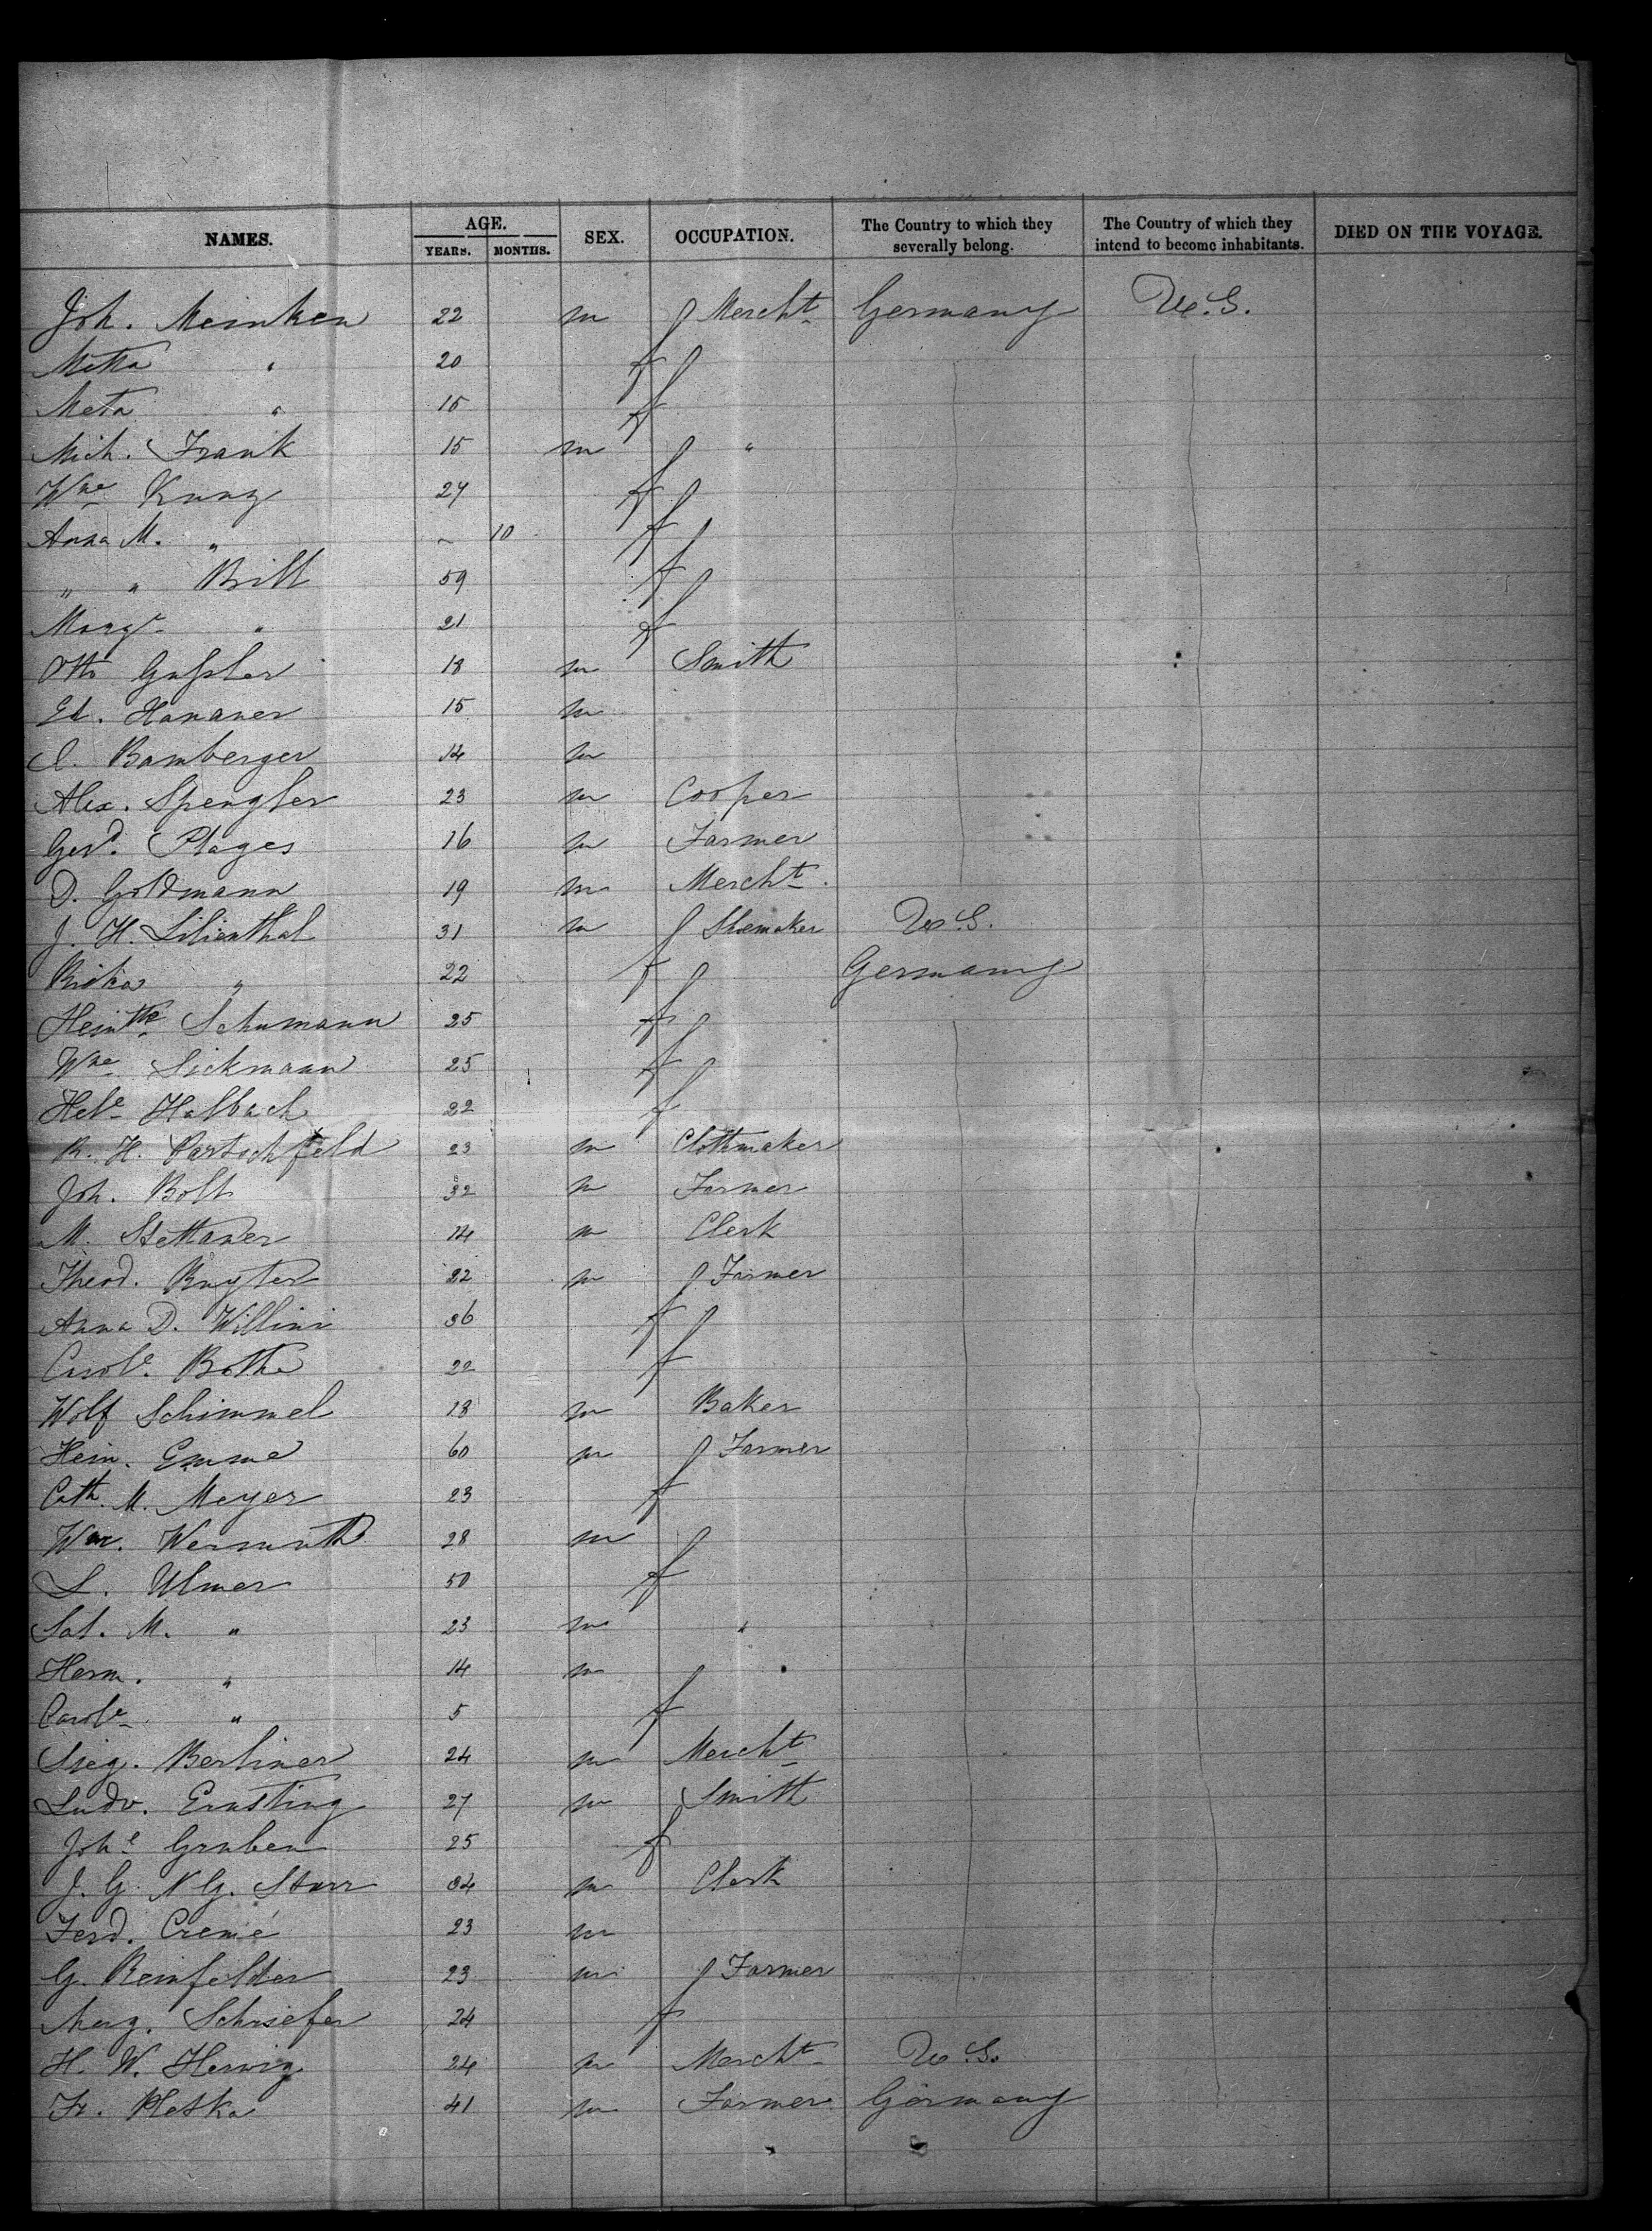 NAMES. AGE. YEARS. MONTHS. SEX. OCCUPATION. The Country to which they severally belong. The Country of which they intend to become inhabitants. DIED ON THE VOYAGE.
Joh. Meinken 22 m Mercht Germany U.S.
Metta " 20 f
Meta " 15 f
Mich. Frank 15 m "
Wne Kunz 27 f
Anna M. " ~ 10 f
" " Brill 59 f
Margt " 21 f
Otto Gußler 18 m Smith
Ed. Hanauer 15 m
I. Bamberger 14 m
Alex. Spengler 23 m Cooper
Gerd. Plages 16 m Farmer
D. Goldmann 19 m Mercht.
J. H. Lilienthal 31 m Shoemaker U.S.
Rieka " 22 f Germany
Heintte Schumann 25 f
Wne Sickmann 25 f
Hele Halbach 22 f
R. H. Partschfeld 23 m Clothmaker
Joh. Bolt 32 m Farmer
M. Stettaner 14 m Clerk
Theod. Ruyter 22 m Farmer
Anna D. Willini 36 f
Carole. Bothe 22 f
Wolf Schimmel 18 m Baker
Hein. Emme 60 m Farmer
Cath. M. Meyer 23 f
Wm. Wermuth 28 m
L. Ulmer 50 f
Sal. M. " 23 m "
Herm. " 14 m
Carole " 5 f
Sieg. Berliner 24 m Mercht
Ludw. Ernsting 27 m Smith
Johe Gruben 25 f
J. G. N. G. Starr 34 m Clerk
Ferd. Cremé 23 m
G. Reinfelder 23 m Farmer
Marg. Schriefer 24 f
H. W. Herwig 24 m Mercht U.S.
Fr. Pletka 41 m Farmer Germany